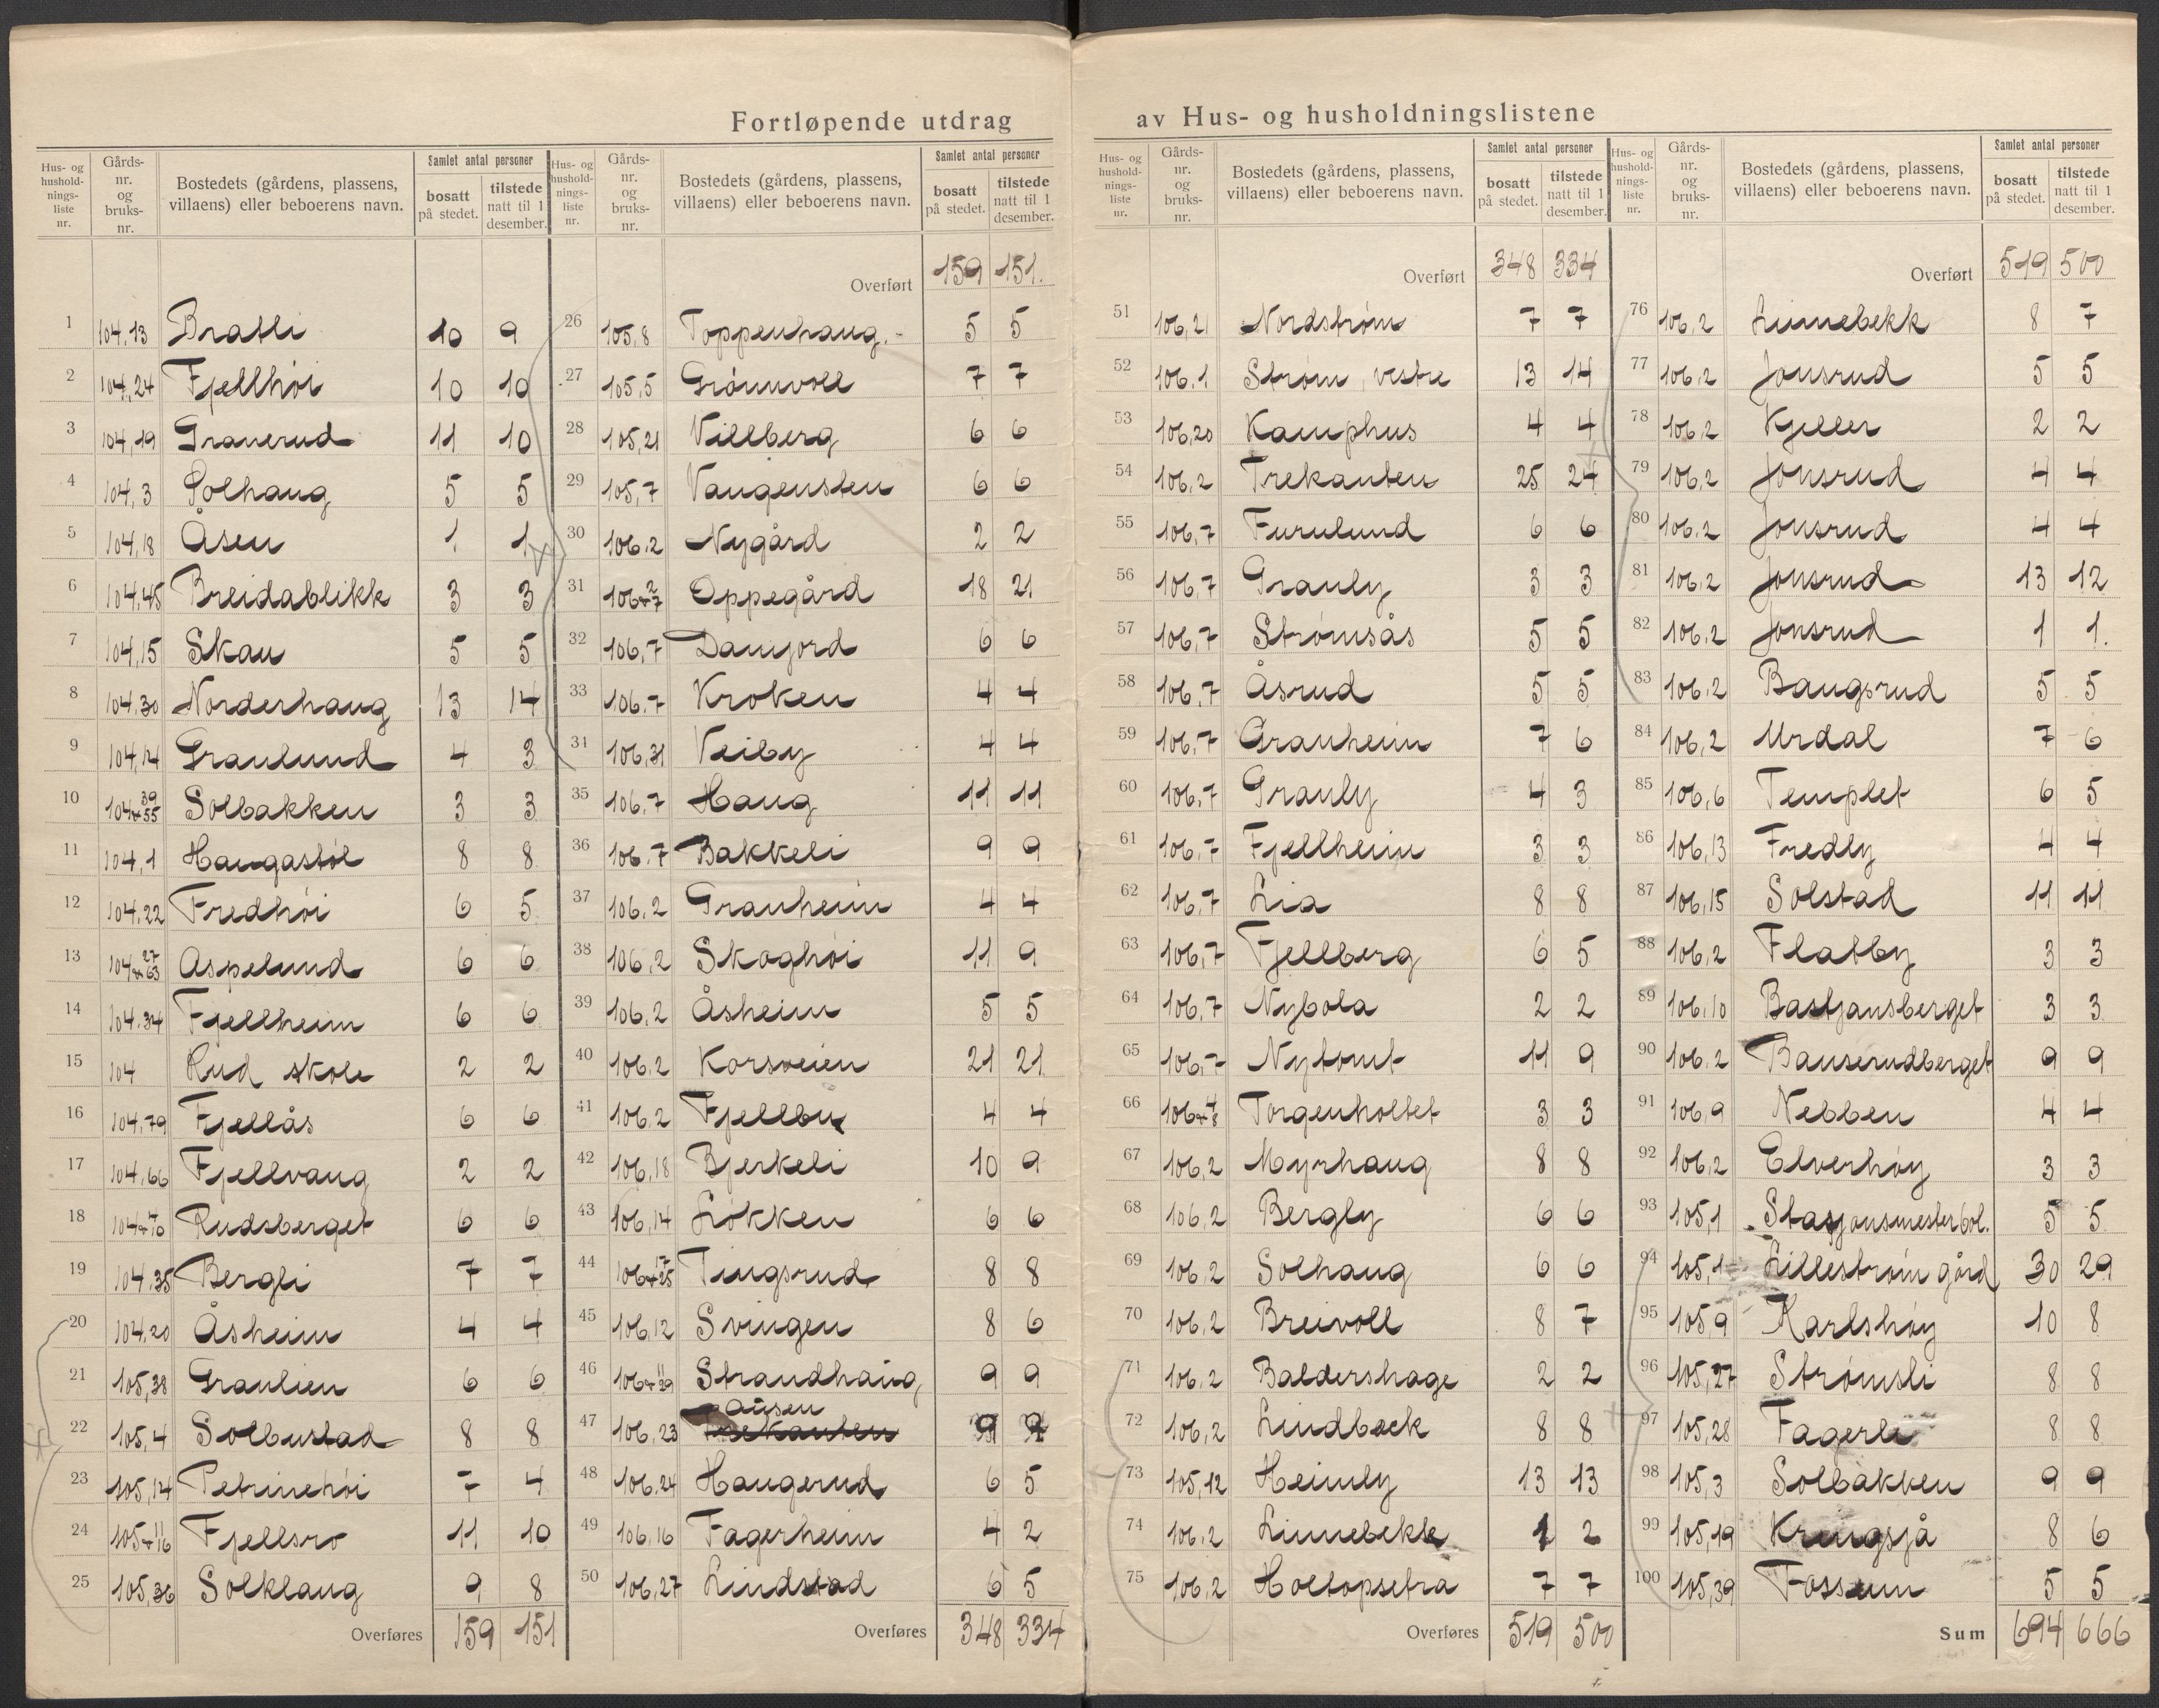 Fortløpende utdrag av Hus- og husholdningslistene
Hus- og husholdningsliste nr. Gårds-nr. og bruks-nr. Bostedets (gårdens, plassens, villaens) eller beboerens navn. Samlet antal personer bosatt på stedet. tilstede natt til 1 desember.
1 104,13 Bratli 10 9
2 104,24 Fjellhöi 10 10
3 104,19 Granerud 11 10
4 104,3 Solhaug 5 5
5 104,18 Åsen 1 1
6 104,45 Breidablikk 3 3
7 104,15 Skau 5 5
8 104,30 Norderhaug 13 14
9 104,14 Granlund 4 3
10 104, 39+55 Solbakken 3 3
11 104,1 Haugastöl 8 8
12 104,22 Fredhöi 6 5
13 104, 27+63 Aspelund 6 6
14 104,34 Fjellheim 6 6
15 104 Rud skole 2 2
16 104,79 Fjellås 6 6
17 104,66 Fjellvang 2 2
18 104 Rudsberget 6 6
19 104,35 Bergli 7 7
20 104,20 Åsheim 4 4
21 105,38 Granlien 6 6
22 105,4 Solbustad 8 8
23 105,14 Petrinehöi 7 4
24 105, 11+16 Fjellsro 11 10
25 105,36 Solklaug 9 8
Overføres 159 151
Hus- og husholdnings-liste nr. Gårds-nr. og bruks-nr. Bostedets (gårdens, plassens, villaens) eller beboerens navn. Samlet antal personer bosatt på stedet. tilstede natt til 1 desember.
Overført 159 151.
26 105,8 Toppenhaug.- 5 5
27 105,5 Grönnvoll 7 7
28 105,21 Villberg 6 6
29 105,7 Vangensten 6 6
30 106,2 Nygård 2 2
31 106, 2+7 Oppegård 18 21
32 106,7 Damjord 6 6
33 106,7 Kroken 4 4
31 106,31 Veiby 4 4
35 106,7 Haug 11 11
36 106,7 Bakkeli 9 9
37 106,2 Granheim 4 4
38 106,2 Skoghöi 11 9
39 106,2 Åsheim 5 5
40 106,2 Korsveien 21 21
41 106,2 Fjellbu 4 4
42 106,18 Bjerkeli 10 9
43 106,14 Lökken 6 6
44 106, 17+25 Tingsrud 8 8
45 106,12 Svingen 8 6
46 106, 11+29 Strandhaug 9 9
47 106,23 Trekanten 9 9
48 106,24 Haugerud 6 5
49 106,16 Fagerheim 4 2
50 106,27 Lindstad 6 5
Overføres 348 334
Hus- og husholdnings-liste nr. Gårds-nr. og bruks-nr. Bostedets (gårdens, plassens, villaens) eller beboerens navn. Samlet antal personer bosatt på stedet. tilstede natt til 1 desember.
Overført 348 334
51 106,21 Nordström 7 7
52 106,1 Ström, vestre 13 14
53 106,20 Kamphus 4 4
54 106,2 Trekanten 25 24
55 106,7 Furulund 6 6
56 106,7 Granly 3 3
57 106,7 Strömsås 5 5
58 106,7 Åsrud 5 5
59 106,7 Granheim 7 6
60 106,7 Granly 4 3
61 106,7 Fjellheim 3 3
62 106,7 Lia 8 8
63 106,7 Fjellberg 6 5
64 106,7 Nybola 2 2
65 106,7 Nytomt 11 9
66 106, 4+8 Torgenholtet 3 3
67 106,2 Myrhaug 8 8
68 106,2 Bergly 6 6
69 106,2 Solhaug 6 6
70 106,2 Breivoll 8 7
71 106,2 Baldershage 2 2
72 106,2 Lindbæk 8 8
73 105,12 Heimly 13 13
74 106,2 Linnebekk 2
75 106,2 Holtopsetra 7 7
Overføres 519 500
Hus- og husholdnings-liste nr. Gårds-nr. og bruks-nr. Bostedets (gårdens, plassens, villaens) eller beboerens navn. Samlet antal personer bosatt på stedet. tilstede natt til 1 desember.
Overført 519 500
76 106,2 Linnebekk 8 7
77 106,2 Jonsrud 5 5
78 106,2 Kjeller 2 2
79 106,2 Jonsrud 4 4
80 106,2 Jonsrud 4 4
81 106,2 Jonsrud 13 12
82 106,2 Jonsrud 1 1.
83 106,2 Baugsrud 5 5
84 106,2 Urdal 7 6
85 106,6 Templet 6 5
86 106,13 Fredly 4 4
87 106,15 Solstad 11 11
88 106,2 Flatby 3 3
89 106,10 Bastjansberget 3 3
90 106,2 Bauserudberget 9 9
91 106,9 Nebben 4 4
92 106,2 Elverhöy 3 3
93 105,1 Stasjonsmesterbol. 5 5
94 105,1 Lilleström gård 30 29
95 105,9 Karlshöy 10 8
96 105,27 Strömsli 8 8
97 105,28 Fagerli 8 8
98 105,3 Solbakken 9 9
99 105,19 Kringsjå 8 6
100 105,39 Fossum 5 5
Sum 694 666